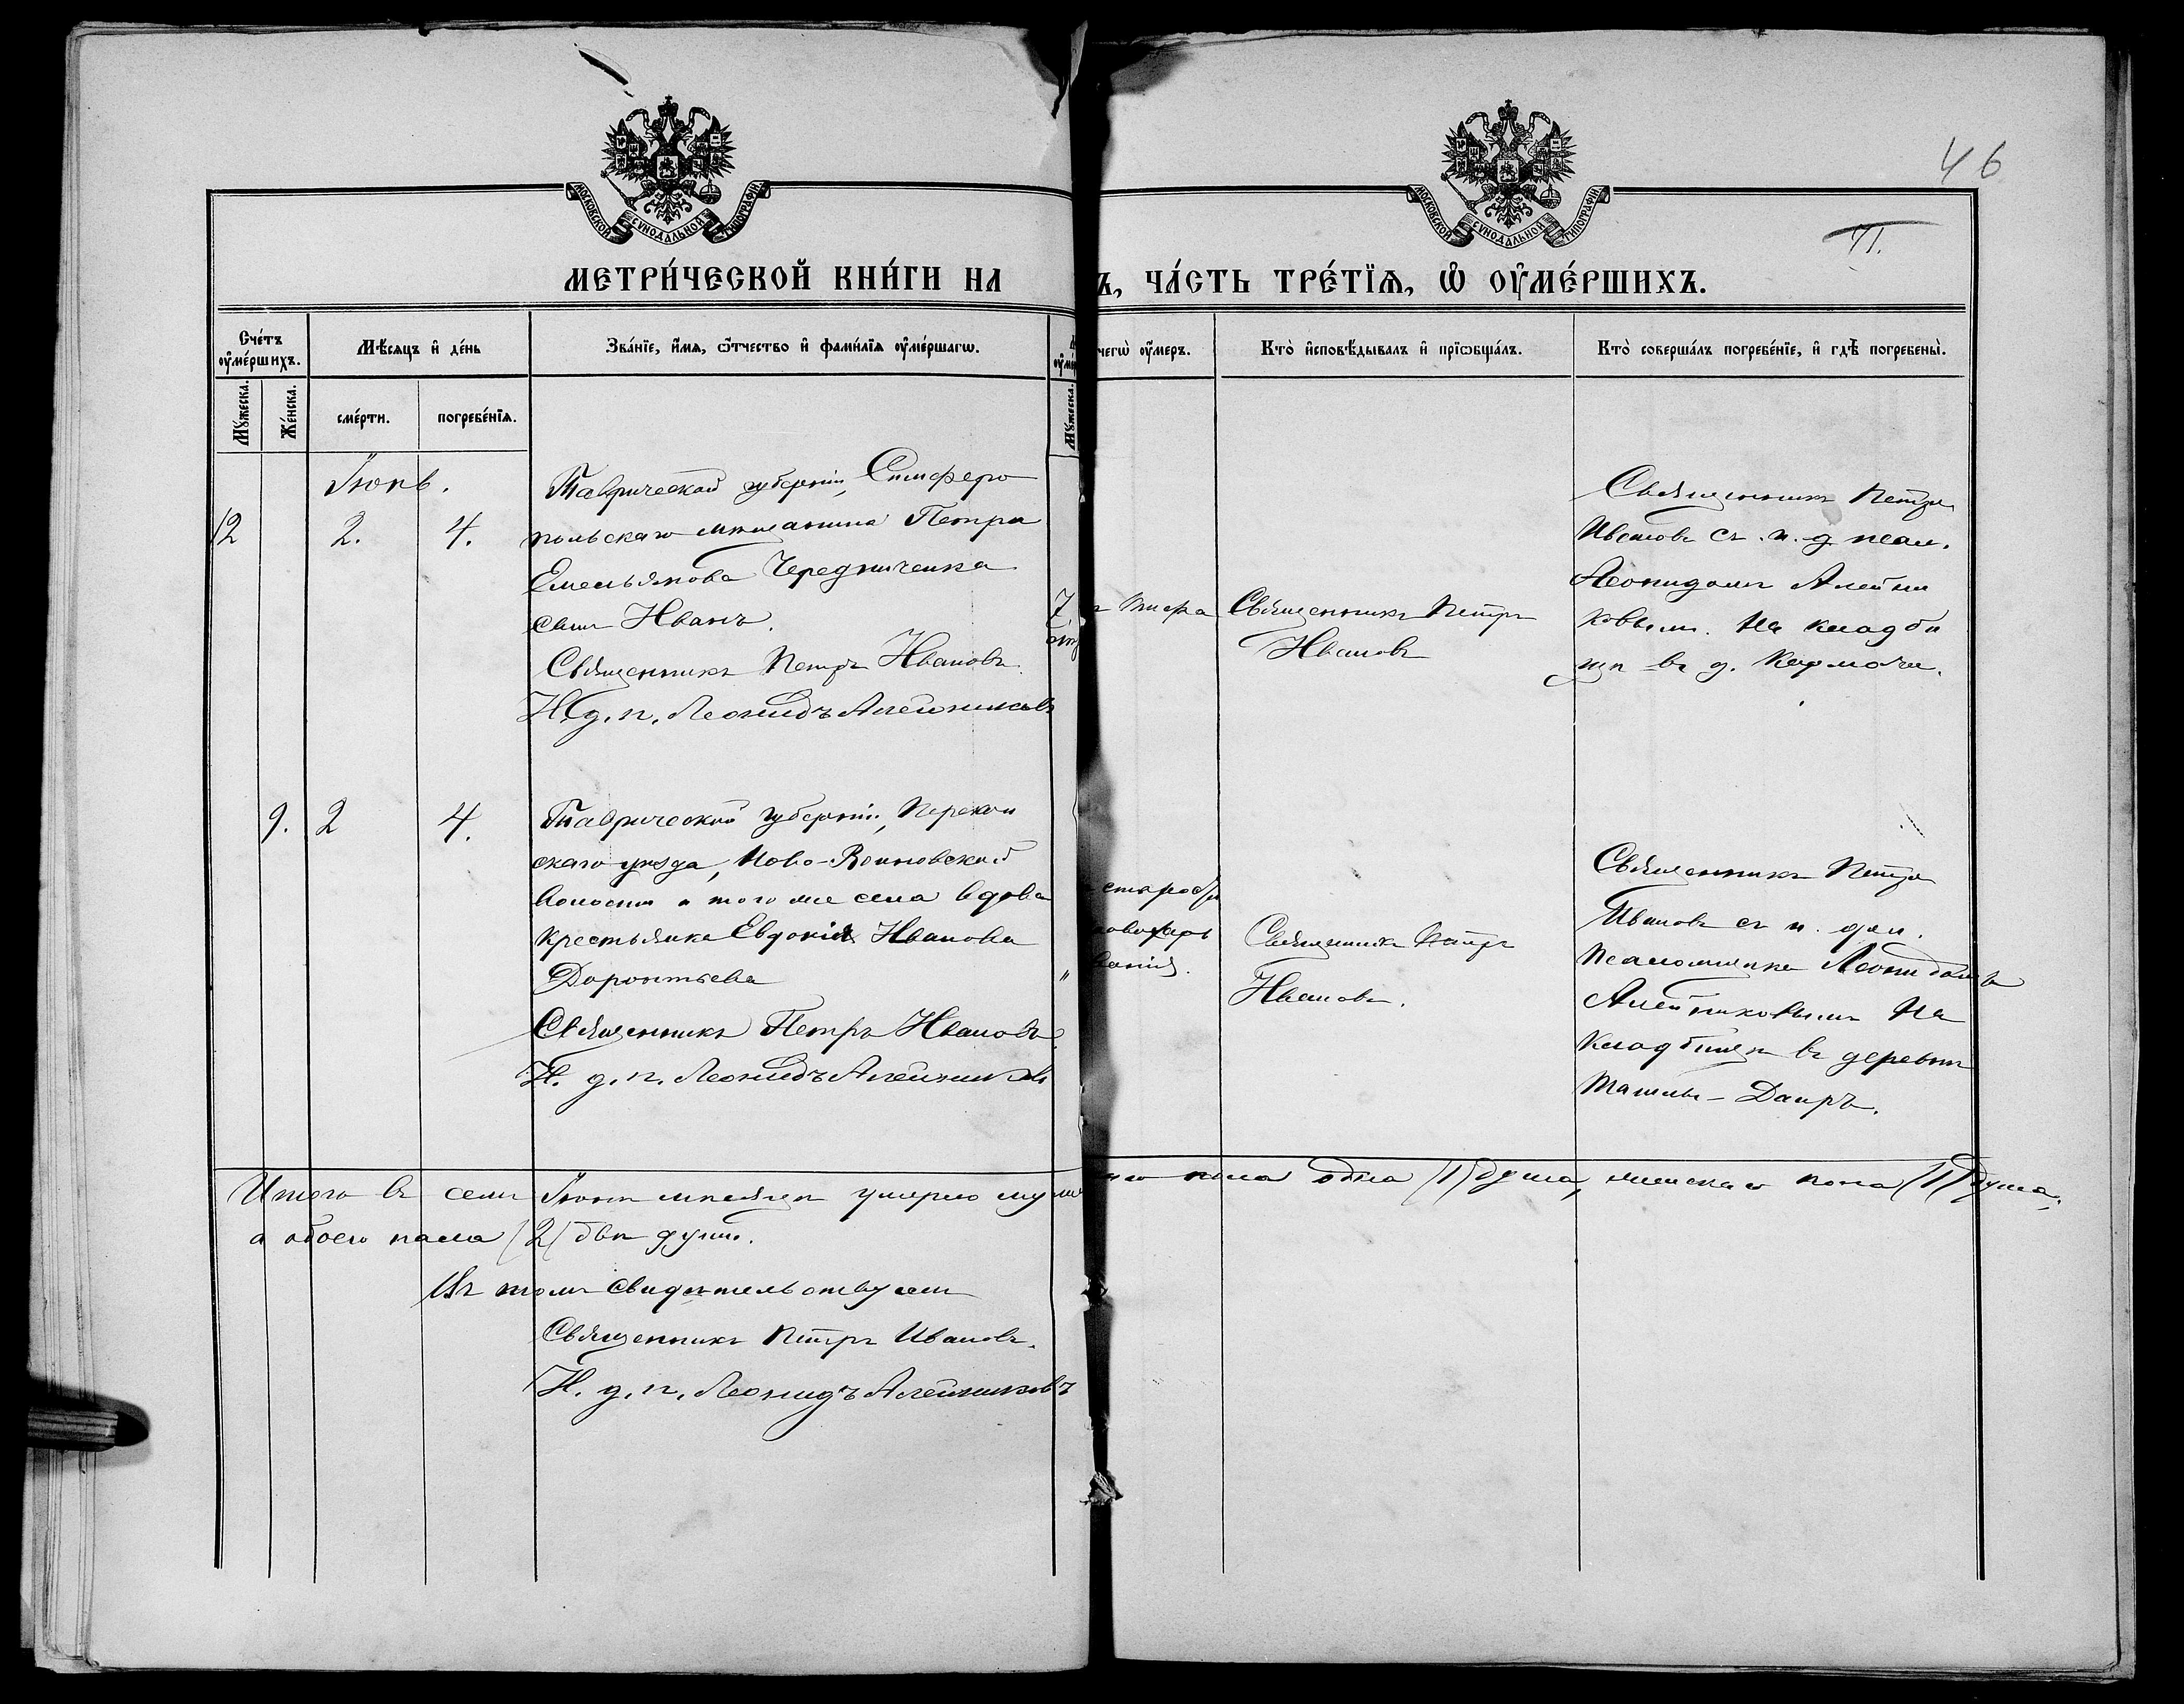 46
71.
МОСКОВСКОЙ СѴНОДАЛЬНОЙ ТИПОГРАФІИ
МОСКОВСКОЙ СѴНОДАЛЬНОЙ ТИПОГРАФІИ
МЕТРИ́ЧЕСКОЙ КНИ́ГИ НА
Ъ, ЧА́СТЬ ТРЕ́ТЇѦ, Ѡ҆ ОУ҆МЕ́РШИХЪ.
Сче́тъ оу҆ме́ршихъ.
Мѣ́сяцъ и҆ де́нь
Зва́нїе, и҆́мя, ѻ҆́тчество и҆ фами́лїя оу҆ме́ршагѡ.
чегѡ̀ оу҆́меръ.
Кто̀ и҆сповѣ́дывалъ и҆ прїѡбща́лъ.
Кто̀ соверша́лъ погребе́нїе, и҆ гдѣ̀ погребены̀.
Мꙋ́жеска.
Же́нска.
сме́рти.
погребе́нїя.
Мꙋ́жеска.
Іюнь.
12
2.
4.
Таврической губерніи, Симферо
польскаго мѣщанина Петра
Емельянова Чередниченка
сынъ Иванъ.
Священникъ Петръ Ивановъ.
И. д. п. Леонидъ Алейниковъ
7
тифа
Священникъ Петръ
Ивановъ
Священникъ Петръ
Ивановъ съ и. д. псал.
Леонидомъ Алейни
ковымъ. На кладби
щѣ въ д.
9.
2
4.
Таврической губерніи, Перекоп
скаго уѣзда, Ново-
волости и того же села вдова
крестьянка Евдокія Иванова
Дорофтьева
Священникъ Петръ Ивановъ.
И. д. п. Леонидъ Алейниковъ
"
Священникъ Петръ
Ивановъ.
Священникъ Петръ
Ивановъ съ и. дол.
псаломщика Леонидомъ
Алейниковымъ На
кладбищѣ въ деревнѣ
Ташлы-Даиръ.
Итого въ семъ Іюнѣ мѣсяцѣ умерло муж
пола одна (1) душа, женскаго пола (1) душа,
а обоего пола (2) двѣ души.
Въ томъ свидѣтельствуемъ
Священникъ Петръ Ивановъ.
И. д. п. Леонидъ Алейниковъ